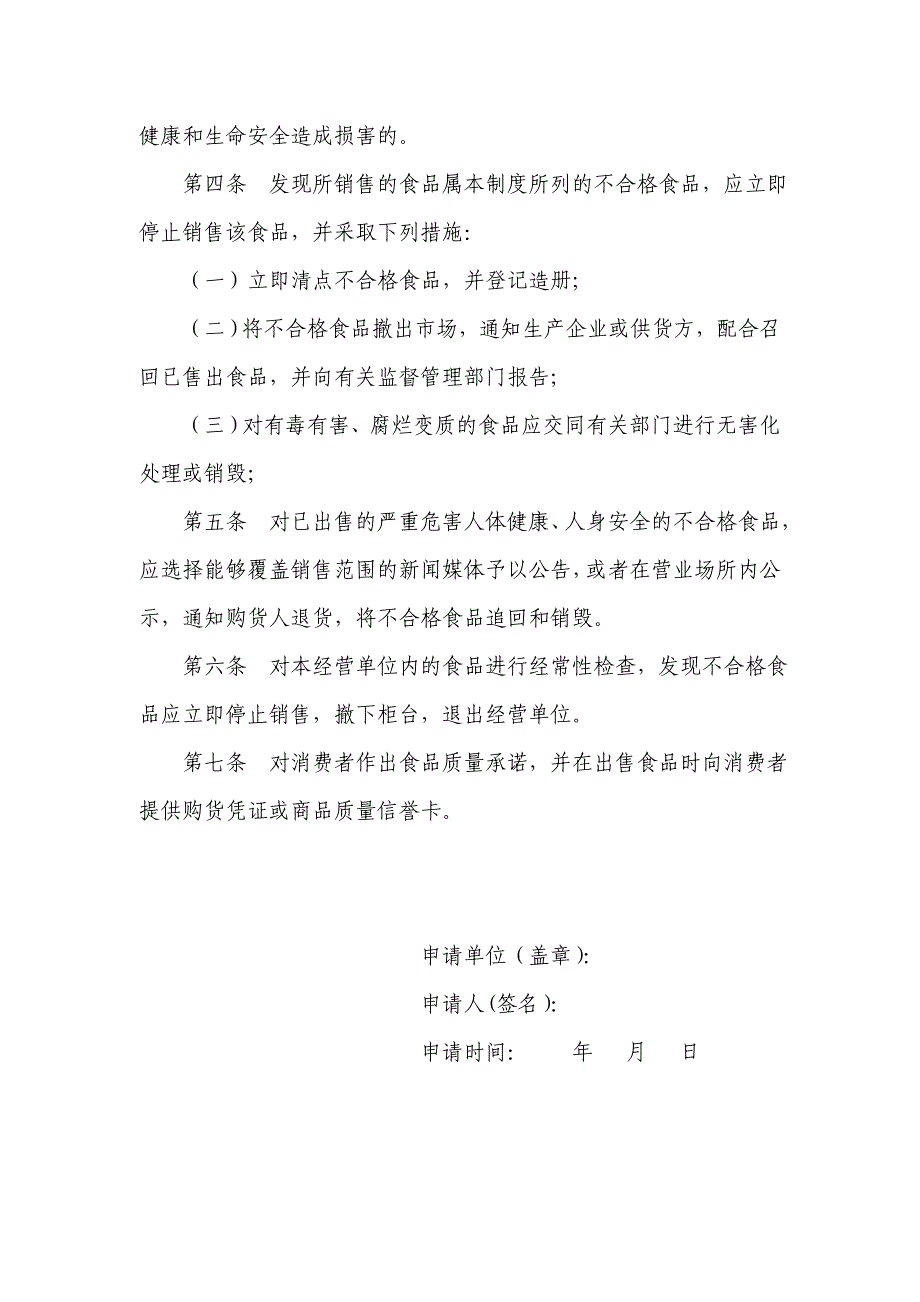 健康和生命安全造成损害的。
第四条　发现所销售的食品属本制度所列的不合格食品，应立即
停止销售该食品，并采取下列措施：
（一）立即清点不合格食品，并登记造册；
（二）将不合格食品撤出市场，通知生产企业或供货方，配合召
回已售出食品，并向有关监督管理部门报告；
（三）对有毒有害、腐烂变质的食品应交同有关部门进行无害化
处理或销毁；
第五条　对已出售的严重危害人体健康、人身安全的不合格食品，
应选择能够覆盖销售范围的新闻媒体予以公告，或者在营业场所内公
示，通知购货人退货，将不合格食品追回和销毁。
第六条　对本经营单位内的食品进行经常性检查，发现不合格食
品应立即停止销售，撤下柜台，退出经营单位。
第七条　对消费者作出食品质量承诺，并在出售食品时向消费者
提供购货凭证或商品质量信誉卡。
申请单位（盖章）：
申请人(签名)：
申请时间：　　年　月　日